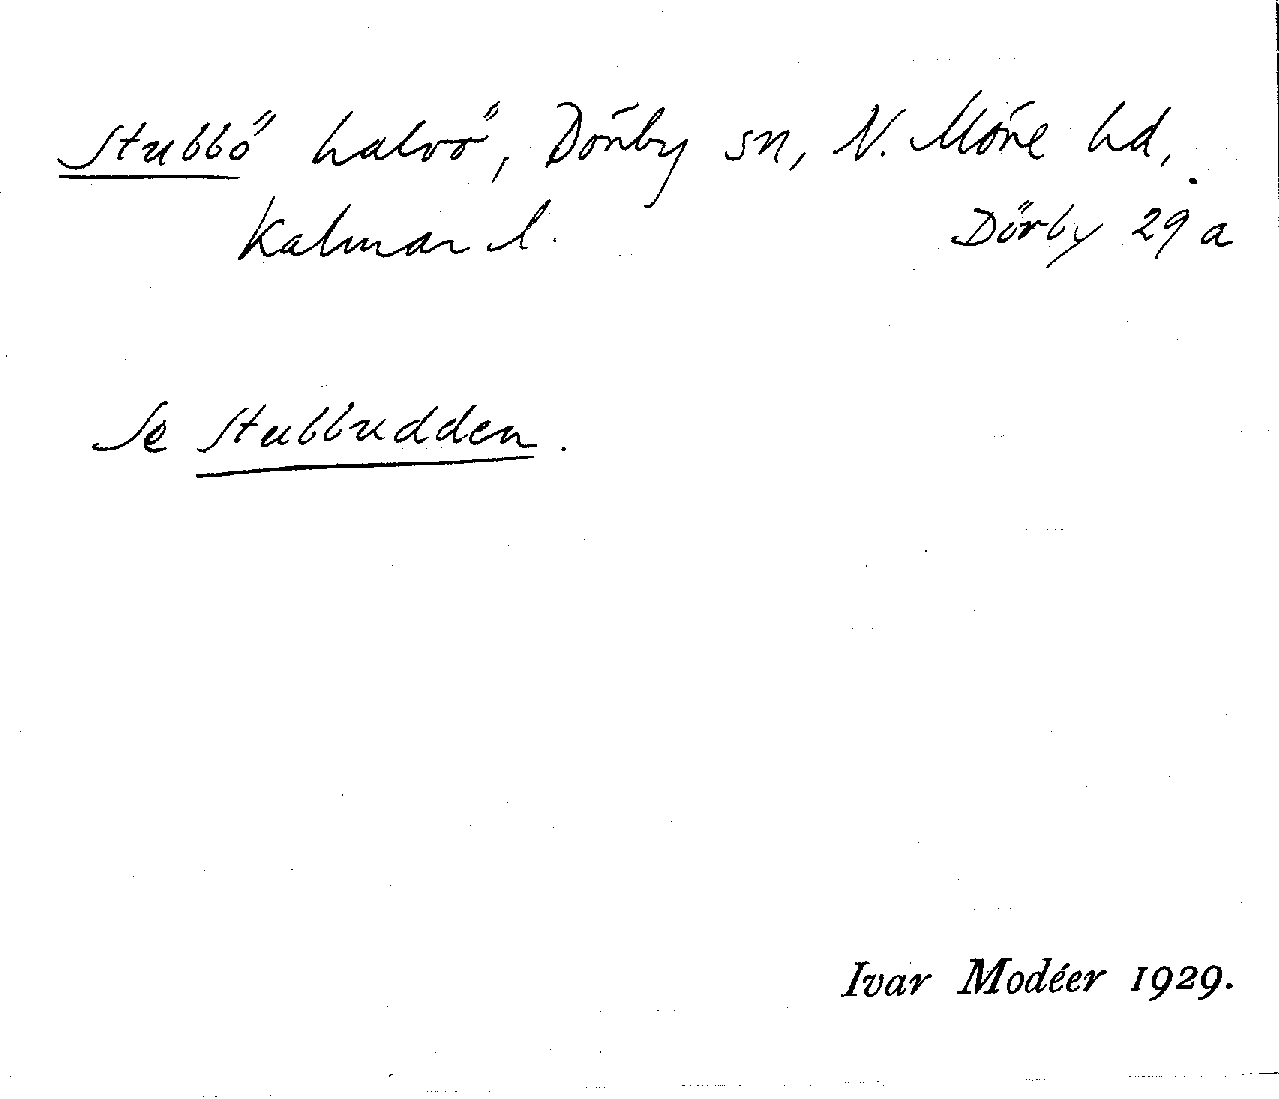 Stubbö halvö, Dörby sn, N. Möre hd,
Kalmar l. Dörby 29 a
Se Stubbudden.
Ivar Modéer 1929.